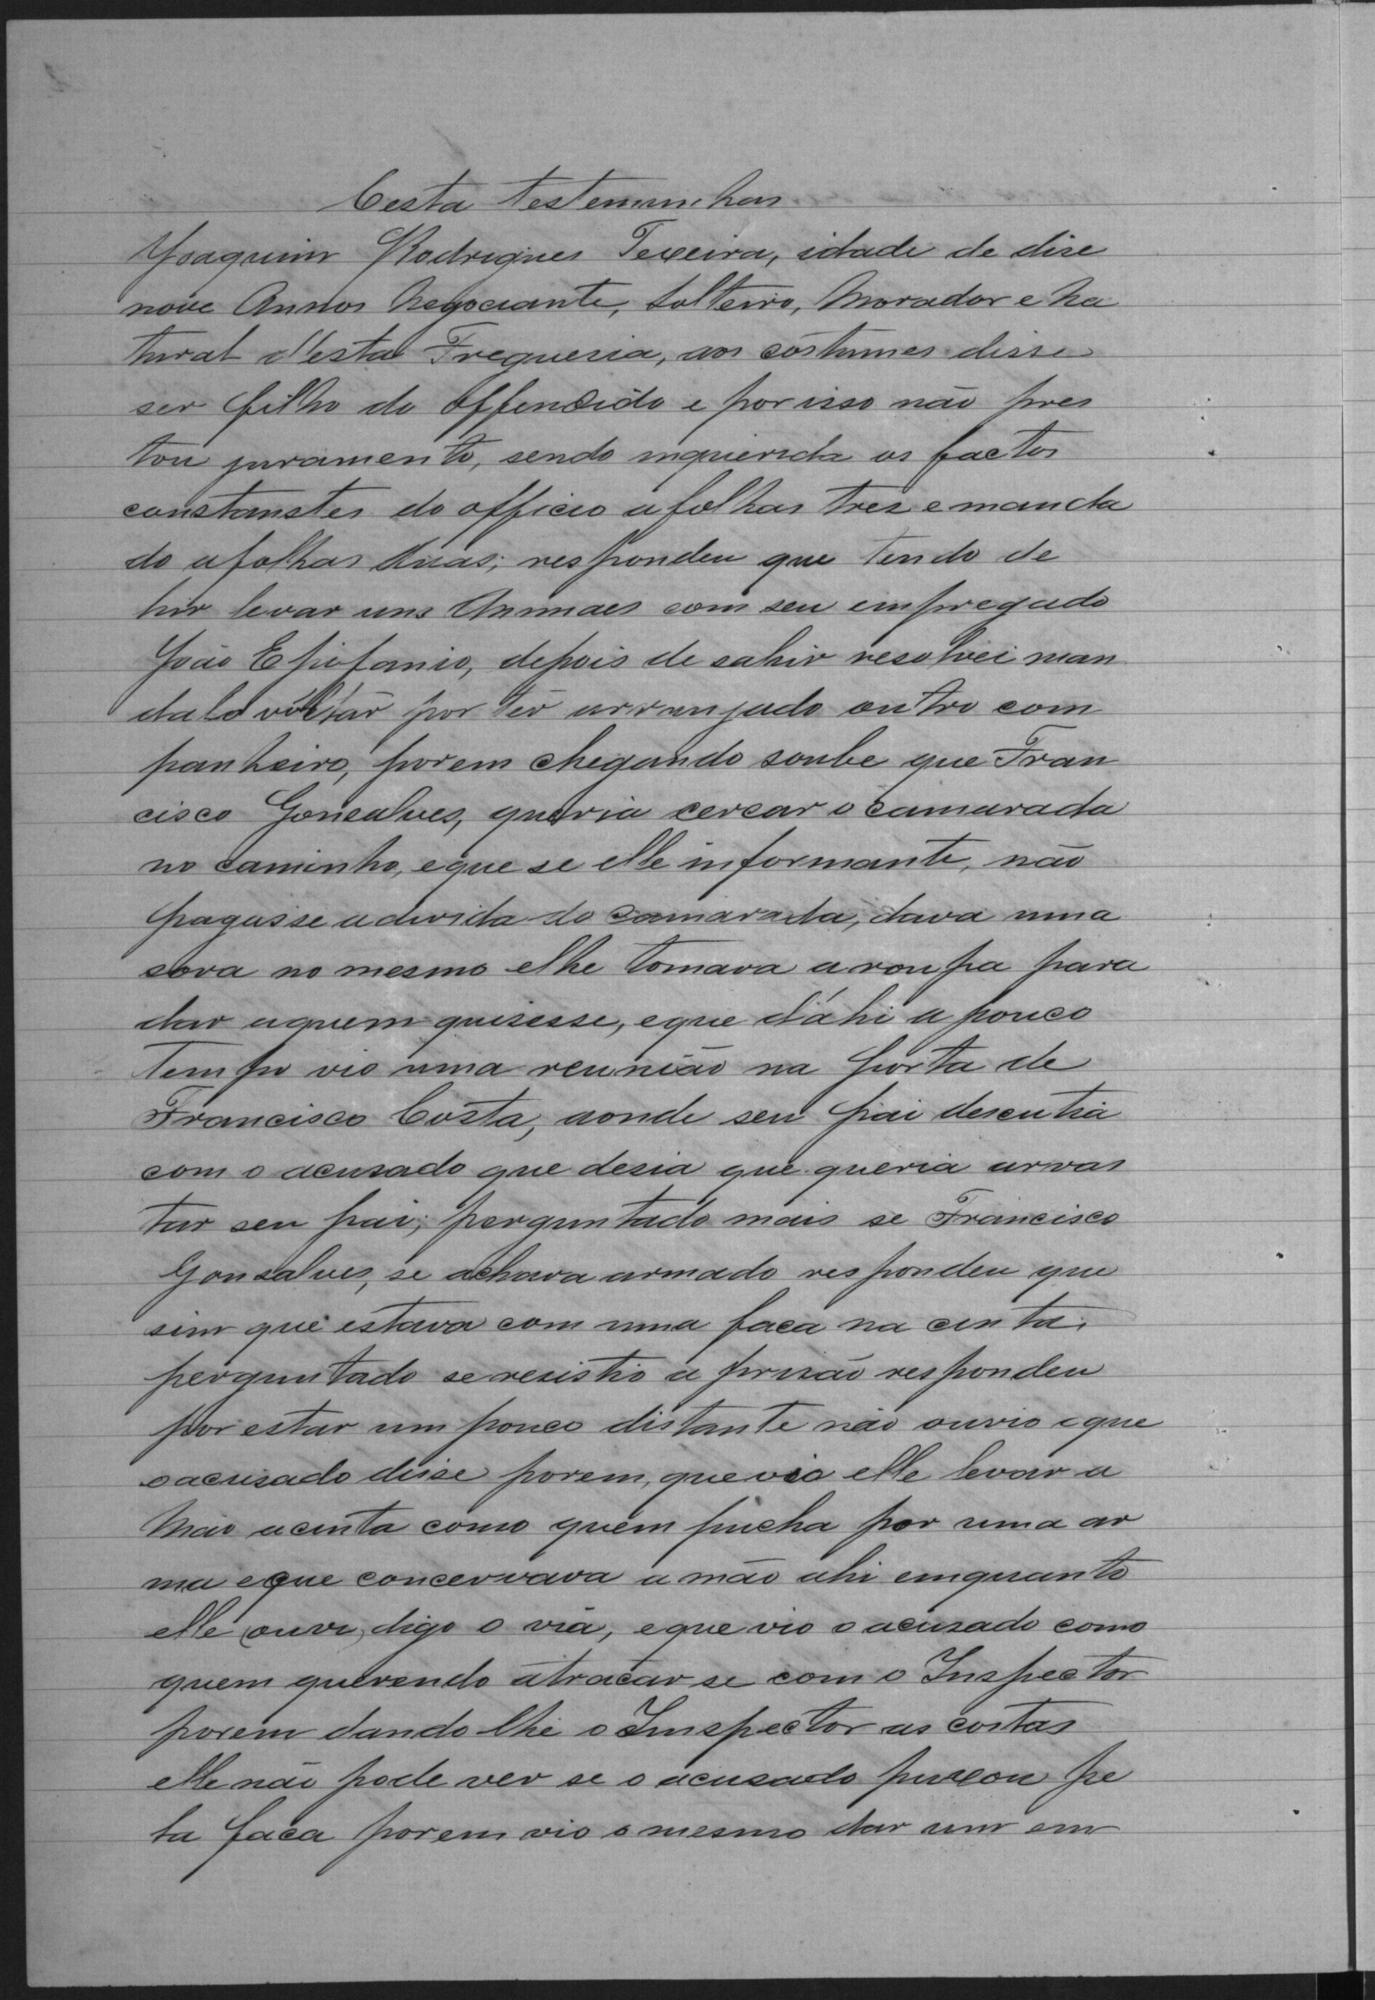 Cesta testemunhas
Joaquim Rodrigues Texeira, idade de dise
nove Annos Negociante, solteiro, Morador e na
tural d'esta Freguesia, aos costumes disse
ser filho do offendido e por isso não pres
tou juramento, sendo inquerida os factos
constanstes do officio a folhas tres e manda
do a folhas duas; respondeu que tendo de
hir levar uns Animaes com seu empregado
João Epifanio, depois de sahir resolvei man
dalo voltar por ter arranjado outro com
panheiro, porem chegando soube que Fran
cisco Gonsalves, queria cercar o camarada
no caminho, e que se elle informante, não
pagasse a divida do camarada, dava uma
sova no mesmo e lhe tomava a roupa para
dar a quem quisesse, e que d'áhi a pouco
tempo vio uma reunião na porta de
Francisco Costa, aonde seu pai descutia
com o acusado que desia que queria arras
tar seu pai; perguntado mais se Francisco
Gonsalves, se achava armado respondeu que
sim que estava com uma faca na cinta.
perguntado se resistio a prisão respondeu
por estar um pouco distante não ouvio o que
o acusado disse porem, que vio elle levar a
Mão a cinta como quem pucha por uma ar
ma e que concervava a mão ahi emquanto
elle (ouvi) digo o via, e que vio o acusado como
quem querendo atracar se com o Inspector
porem dando lhe o Imspector as costas
elle não pode ver se o acusado puxou pe
la faca porem vio o mesmo dar um em